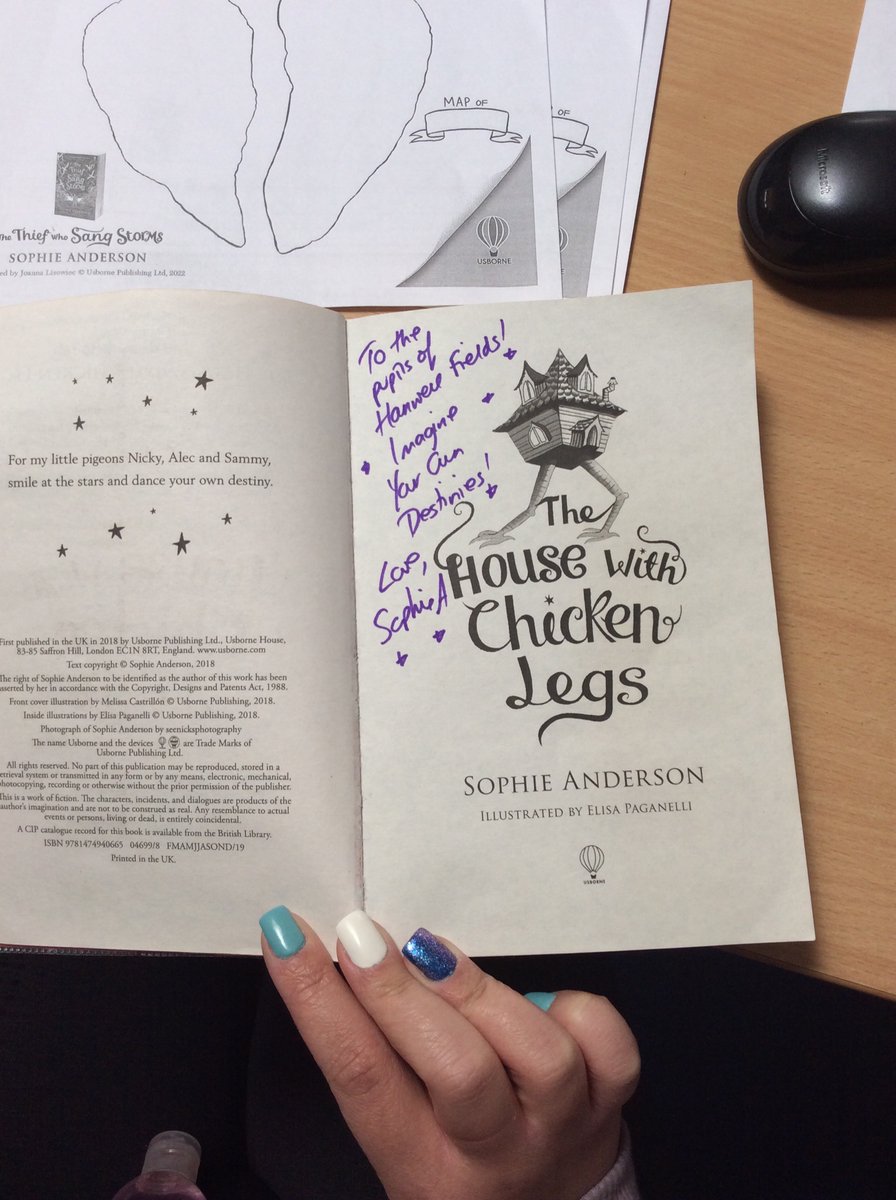 MAP OF
OF
Thief who Sang Storms
SOPHIE ANDERSON
by Joanna Lisowiec © Usborne Publishing Ltd, 2022
USBORNE
Microsoft
For my little pigeons Nicky, Alec and Sammy,
smile at the stars and dance your own destiny.
First published in the UK in 2018 by Usborne Publishing Ltd., Usborne House,
83-85 Saffron Hill, London EC1N 8RT, England. www.usborne.com
Text copyright © Sophie Anderson, 2018
The right of Sophie Anderson to be identified as the author of this work has been
asserted by her in accordance with the Copyright, Designs and Patents Act, 1988.
Front cover illustration by Melissa Castrillón © Usborne Publishing, 2018.
Inside illustrations by Elisa Paganelli © Usborne Publishing, 2018.
Photograph of Sophie Anderson by seenicksphotography
The name Usborne and the devices are Trade Marks of
Usborne Publishing Ltd.
All rights reserved. No part of this publication may be reproduced, stored in a
retrieval system or transmitted in any form or by any means, electronic, mechanical,
photocopying, recording or otherwise without the prior permission of the publisher.
This is a work of fiction. The characters, incidents, and dialogues are products of the
author's imagination and are not to be construed as real. Any resemblance to actual
events or persons, living or dead, is entirely coincidental.
A CIP catalogue record for this book is available from the British Library.
ISBN 9781474940665 04699/8 FMAMJJASOND/19
Printed in the UK.
To the
pupils of
Hanwell Fields!
Imagine
Your Own
Destinies!
Love,
SophieA
The
House with
Chicken
Legs
SOPHIE ANDERSON
ILLUSTRATED BY ELISA PAGANELLI
USBORNE